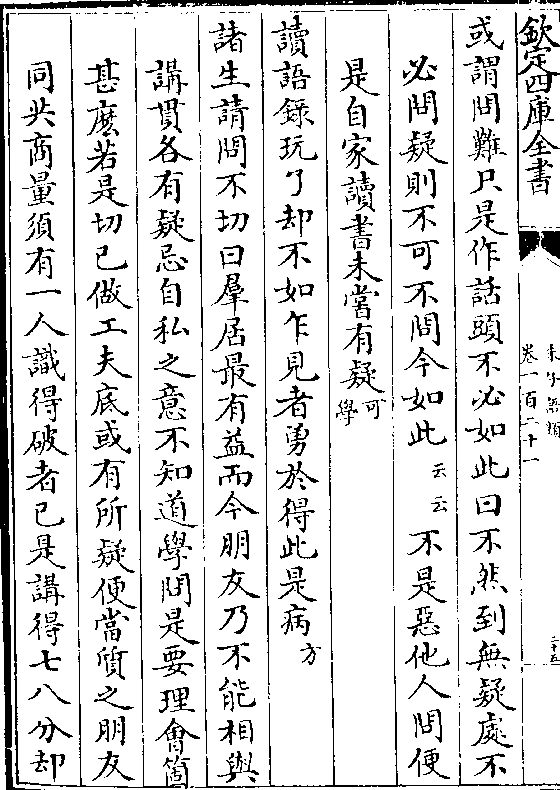 欽定四庫全書
朱子語類
卷一百二十一
二十五
或謂問難只是作話頭不必如此曰不然到無疑處不
必問疑則不可不問今如此云云不是惡他人問便
是自家讀書未嘗有疑可學
讀語錄玩了却不如乍見者勇於得此是病方
諸生請問不切曰羣居最有益而今朋友乃不能相與
講貫各有疑忌自私之意不知道學問是要理會箇
甚麽若是切已做工夫底或有所疑便當質之朋友
同共商量須有一人識得破者已是講得七八分却